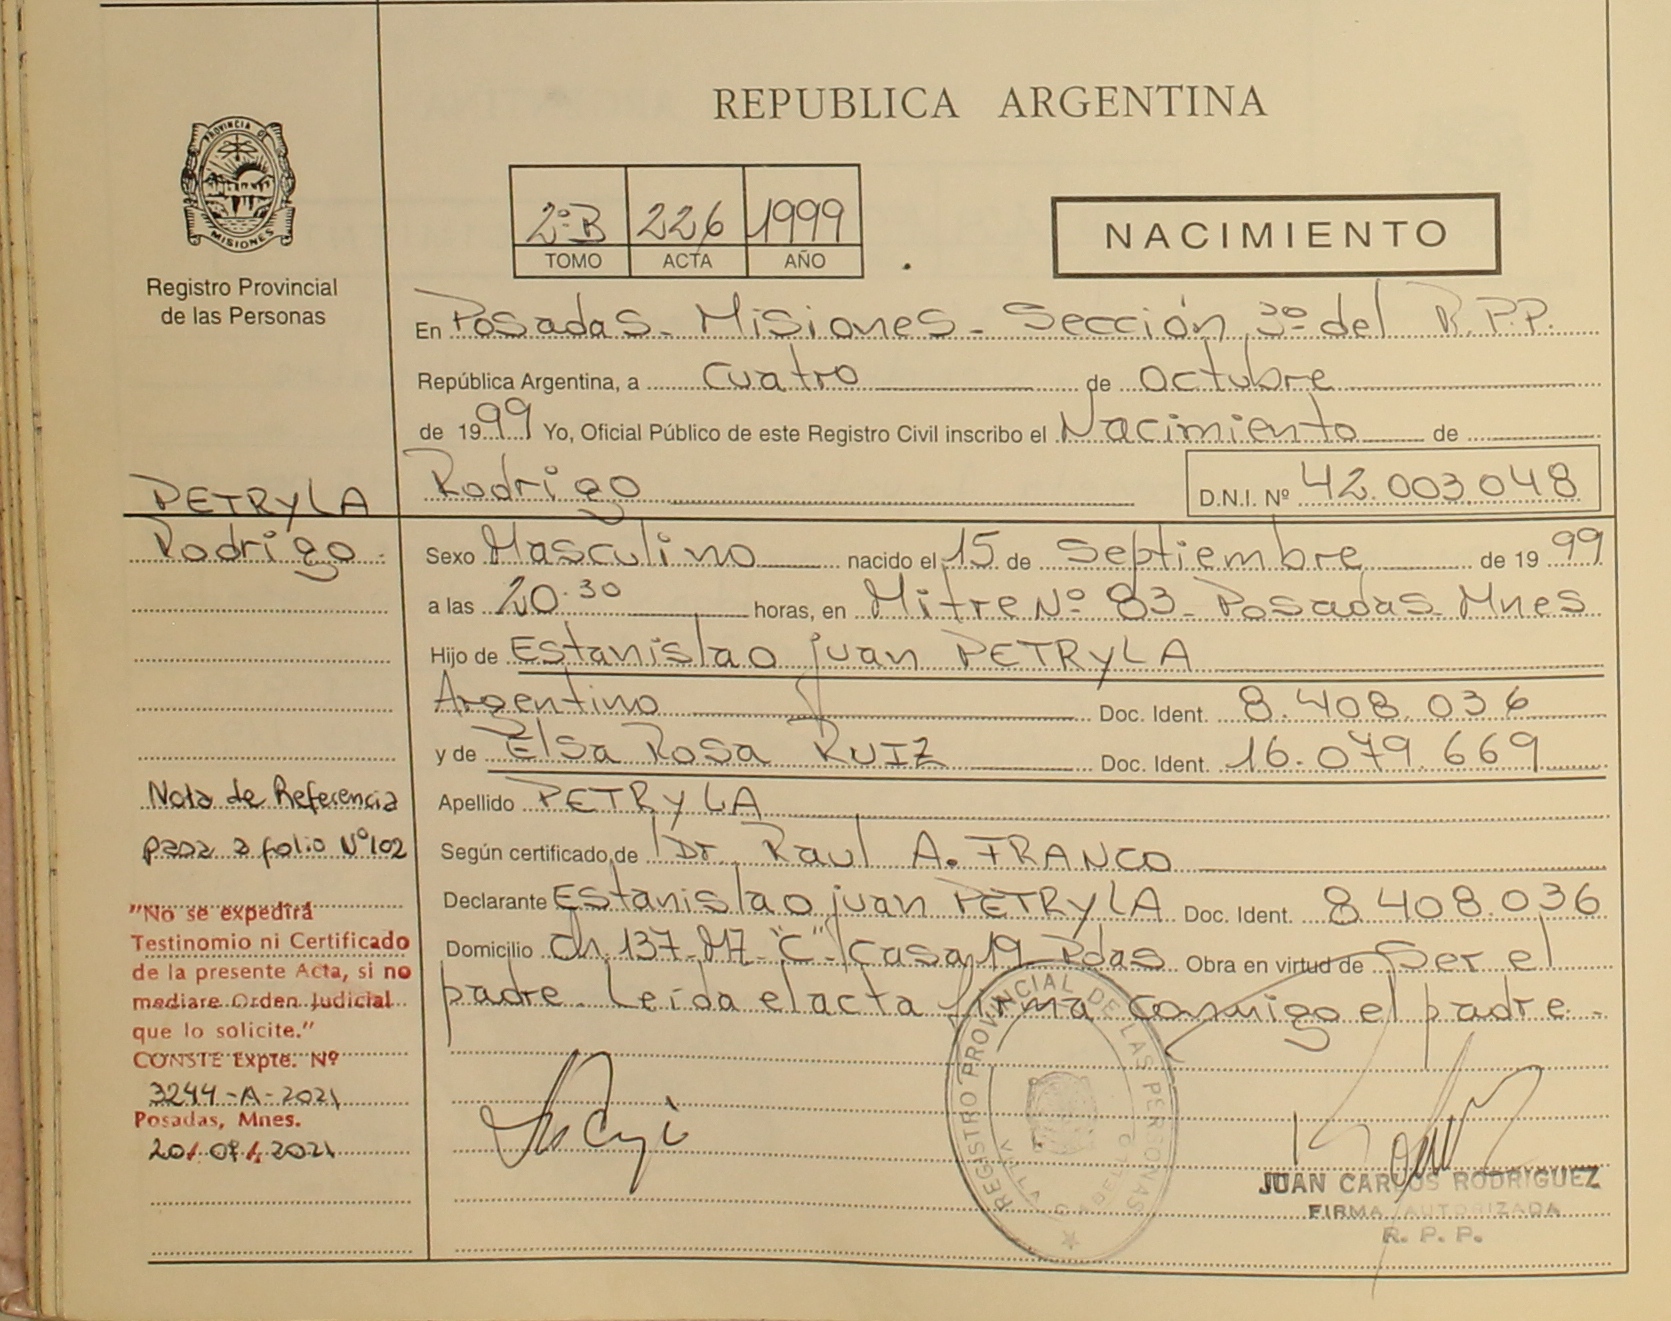 REPUBLICA ARGENTINA
PROVINCIA DE
MISIONES
Registro Provincial
de las Personas
2º B 226 1999
TOMO ACTA AÑO
NACIMIENTO
En Posadas - Misiones - Sección 3º del R.P.P.
República Argentina, a cuatro de octubre
de 1999 Yo, Oficial Público de este Registro Civil inscribo el Nacimiento de
Rodrigo D.N.I. Nº 42.003.048
PETRYLA
Rodrigo.
Sexo Masculino nacido el 15 de Septiembre de 1999
a las 20.30 horas, en Mitre Nº 83 - Posadas - Mnes
Hijo de Estanislao Juan PETRYLA
Argentino Doc. Ident. 8.408.036
y de Elsa Rosa RUIZ Doc. Ident. 16.079.669
Apellido PETRYLA
Según certificado de Dr. Raul A. FRANCO
Declarante Estanislao Juan PETRYLA Doc. Ident. 8.408.036
Domicilio Ch. 137 - M7 - "C" - Casa 19 Pdas Obra en virtud de Ser el
padre. Leída el acta firma conmigo el padre.
Nota de Referencia
pasa a folio Nº 102
"No se expedirá
Testinomio ni Certificado
de la presente Acta, si no
mediare Orden Judicial
que lo solicite."
CONSTE Expte. Nº
3244-A-2021
Posadas, Mnes.
20/07/2021
REGISTRO PROVINCIAL DE LAS PERSONAS
JUAN CARLOS RODRIGUEZ
FIRMA AUTORIZADA
R. P. P.